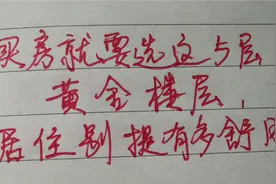 买房就要选这5层
黄金楼层,
居住别提有多舒服